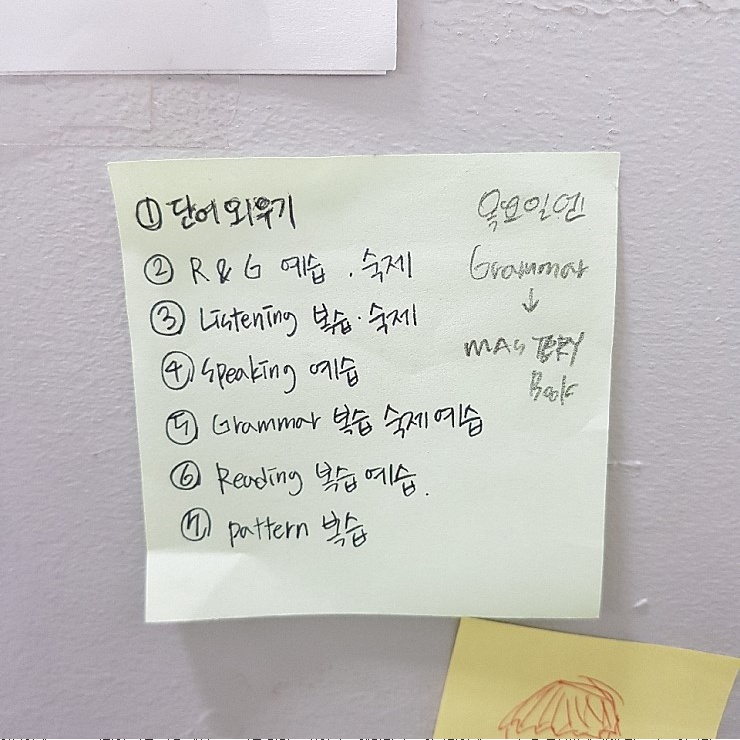 ① 단어 외우기
② R & G 예습 . 숙제
③ Listening 복습 · 숙제
④ Speaking 예습
⑤ Grammar 복습 숙제 예습
⑥ Reading 복습 예습.
⑦ pattern 복습
목요일엔
Grammar
↓
MASTERY
Book